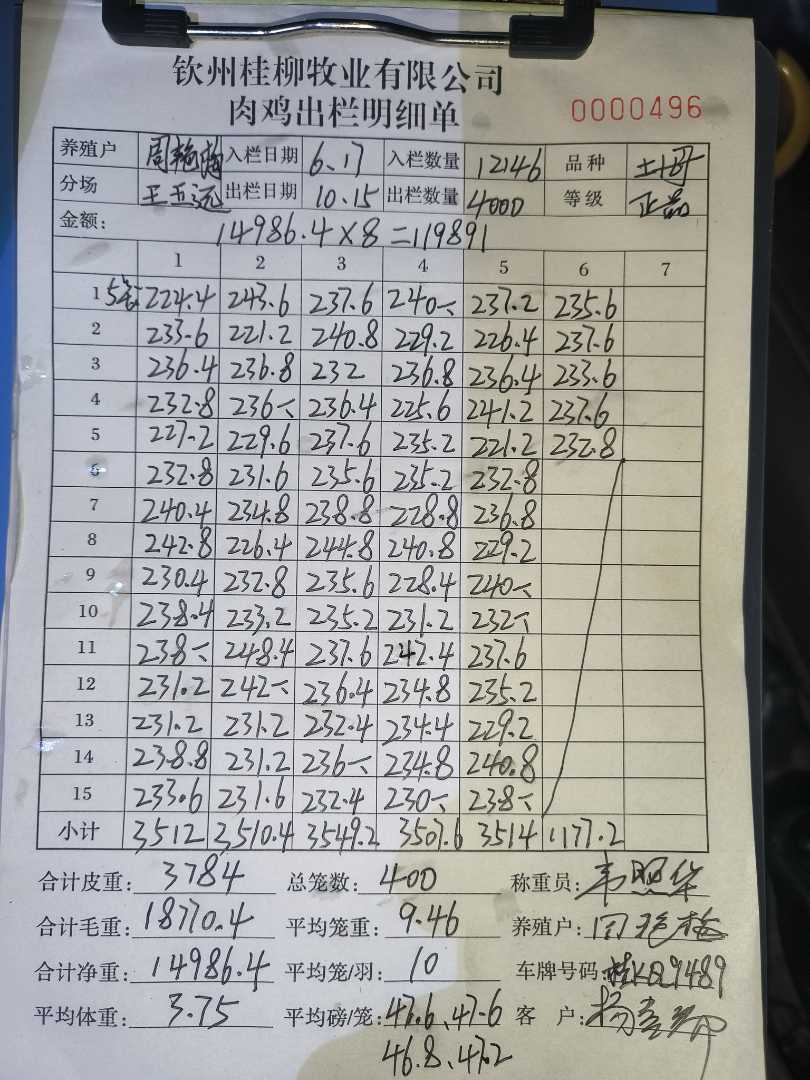 钦州桂柳牧业有限公司
肉鸡出栏明细单 0000496
养殖户 周艳梅 入栏日期 6.17 入栏数量 12146 品种 土母
分场 王五远 出栏日期 10.15 出栏数量 4000 等级 正品
金额: 14986.4×8=119891
1 2 3 4 5 6 7
1 5 224.4 243.6 237.6 240 237.2 235.6
2 233.6 221.2 240.8 229.2 226.4 237.6
3 236.4 236.8 232 236.8 236.4 233.6
4 232.8 236 236.4 225.6 241.2 237.6
5 227.2 229.6 237.6 235.2 221.2 232.8
6 232.8 231.6 235.6 235.2 232.8
7 240.4 234.8 238.8 228.8 236.8
8 242.8 226.4 244.8 240.8 229.2
9 230.4 232.8 235.6 228.4 240
10 238.4 233.2 235.2 231.2 232
11 238 248.4 237.6 242.4 237.6
12 231.2 242 236.4 234.8 235.2
13 231.2 231.2 232.4 234.4 229.2
14 238.8 231.2 236 234.8 240.8
15 233.6 231.6 232.4 230 238
小计 3512 3510.4 3549.2 3507.6 3514 1177.2
合计皮重: 3784 总笼数: 400 称重员: 韦照华
合计毛重: 18770.4 平均笼重: 9.46 养殖户: 周艳梅
合计净重: 14986.4 平均笼/羽: 10 车牌号码: 桂KQ9489
平均体重: 3.75 平均磅/笼: 47.6、47.6 客 户:
46.8、47.2